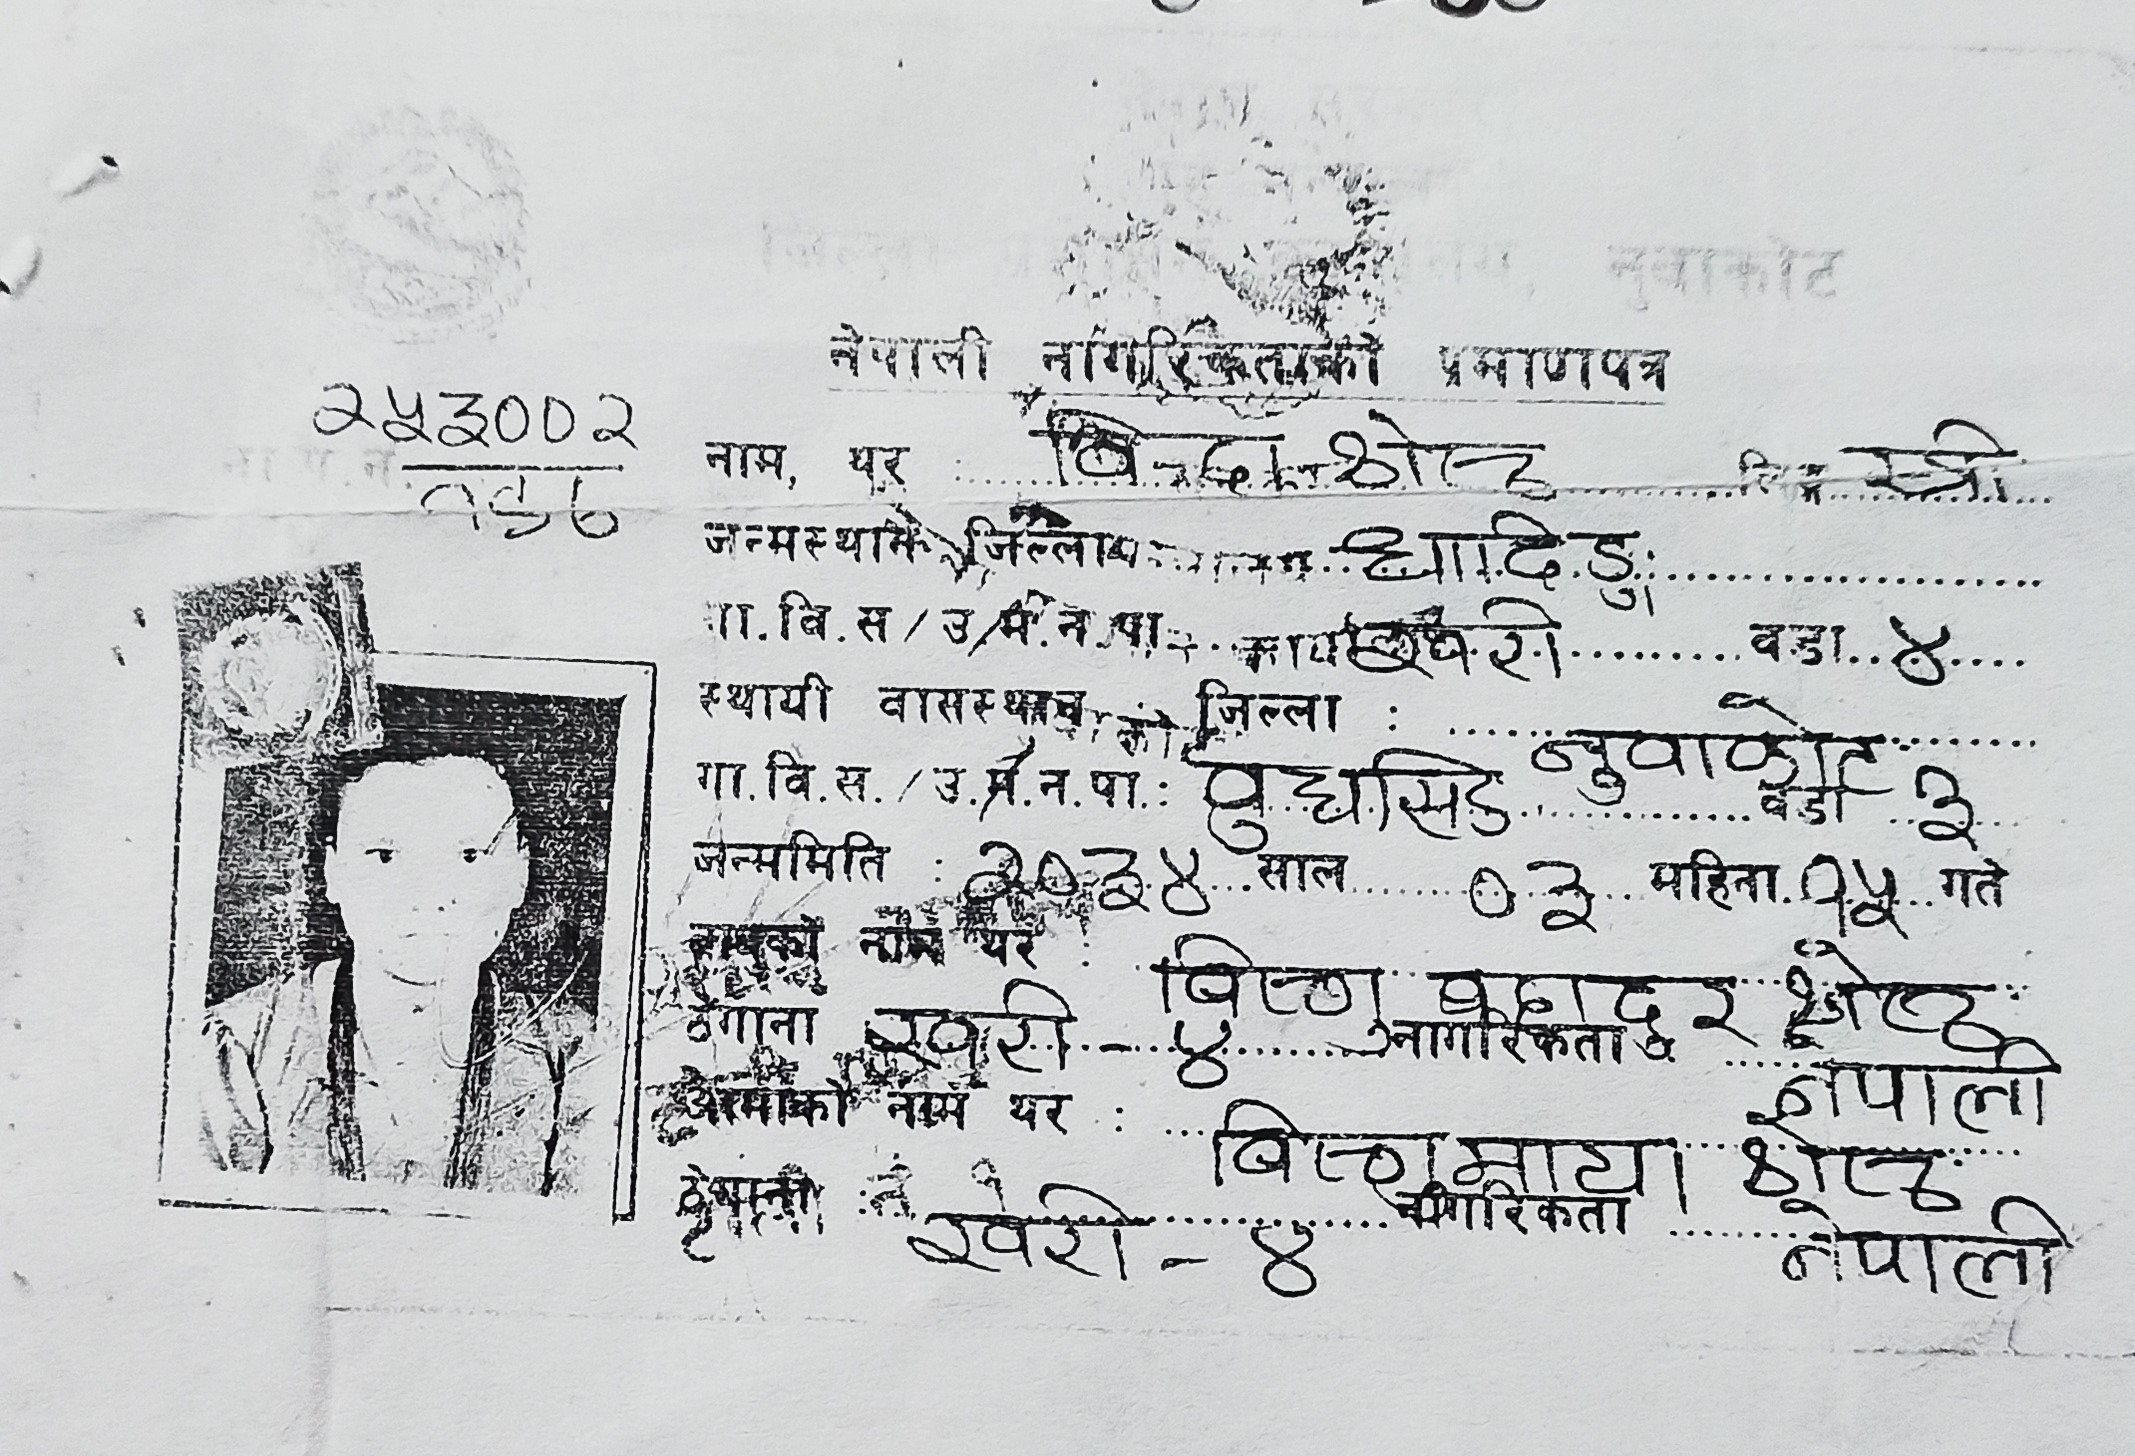 नेपाली नागरिकताको प्रमाणपत्र
२५३००२
१९७
नाम, थर : विन्दा श्रेष्ठ लिङ्ग स्त्री
जन्मस्थान जिल्ला धादिङ
गा.वि.स/उ.म.न.पा. खरी वडा ४
स्थायी वासस्थान : जिल्ला : नुवाकोट
गा.वि.स./उ.म.न.पा.: बुधसिंङ वडा ३
जन्ममिति : २०३४ साल ०३ महिना १५ गते
बाबुको नाम थर : विष्णु बहादुर श्रेष्ठ
ठेगाना खरी - ४ नागरिकता नेपाली
आमाको नाम थर : विष्णुमाया श्रेष्ठ
ठेगाना : खरी - ४ नागरिकता नेपाली